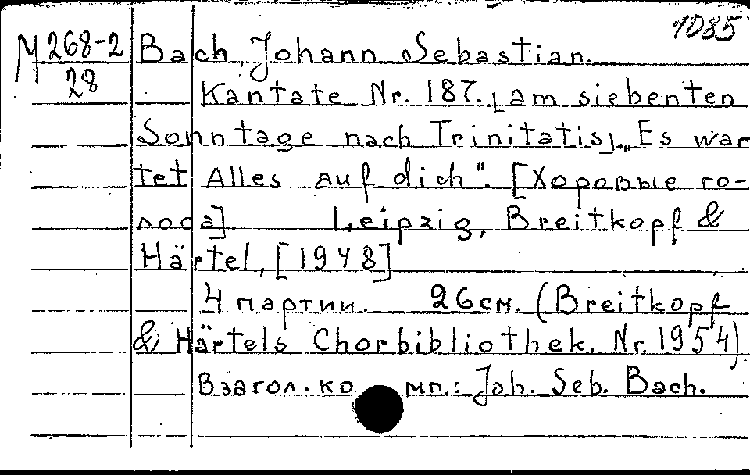 1085
М 268-2 Bach, Johann Sebastian.
28
Kantate Nr. 187. [am siebenten
Sonntage nach Trinitatis]. „Es war
tet Alles auf dich". [Хоровые го-
лоса] Leipzig, Breitkopf &
Härtel, [1948]
4 партии. 26 см. (Breitkopf
& Härtels Chorbibliothek. Nr. 1954)
В загол. ко мп.: Joh. Seb. Bach.